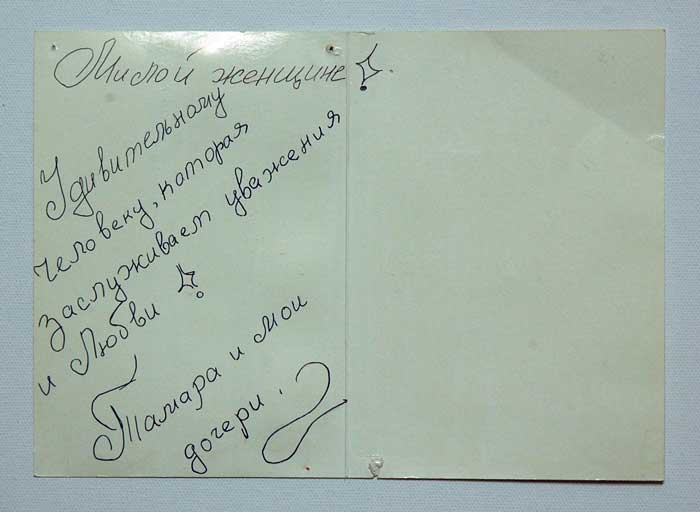 Милой женщине!
Удивительному
человеку, которая
заслуживает уважения
и Любви!
Тамара и мои
дочери.